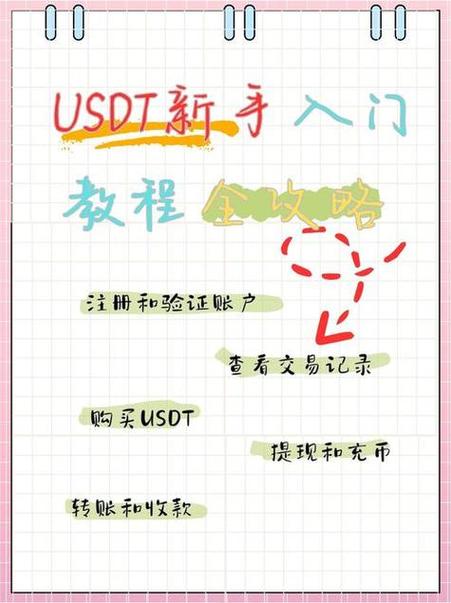 USDT新手入门
教程全攻略
注册和验证账户
查看交易记录
购买USDT
提现和充币
转账和收款